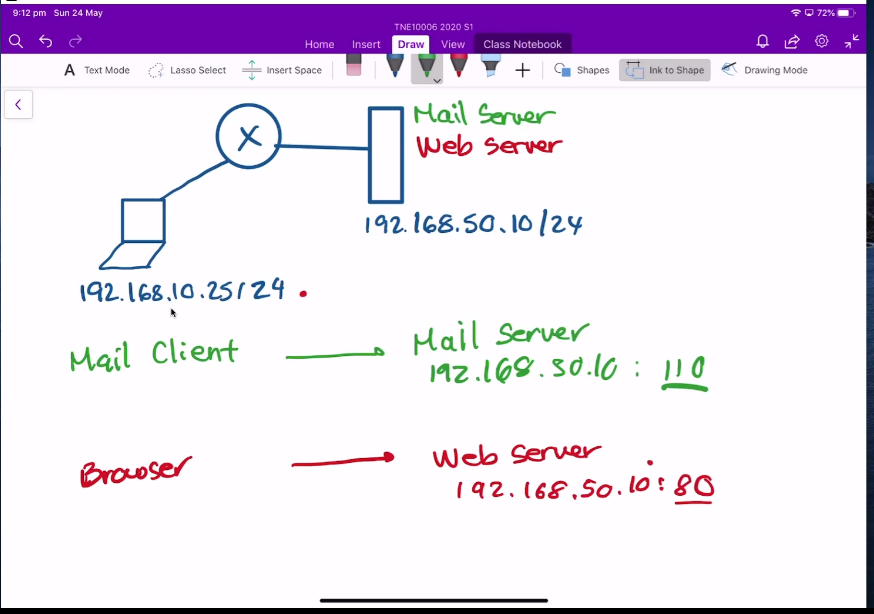 9:12 pm Sun 24 May
72%
TNE10006 2020 S1
Home Insert Draw View Class Notebook
A Text Mode Lasso Select Insert Space Shapes Ink to Shape Drawing Mode
X
Mail Server
Web Server
192.168.50.10/24
192.168.10.25/24
Mail Client
Mail Server
192.168.50.10 : 110
Browser
Web Server
192.168.50.10:80